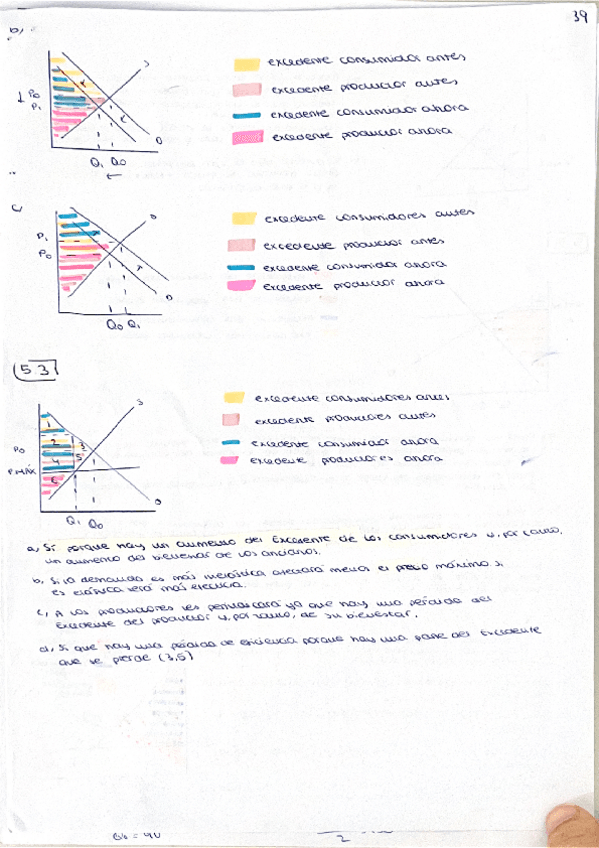 39
b,
excedente consumidor antes
excedente productor antes
excedente consumidor ahora
excedente productor ahora
S
↓ P0
P1
D
Q1 Q0
←
c,
excedente consumidores antes
excedente productor antes
excedente consumidor ahora
excedente productor ahora
P1
P0
D
Q0 Q1
5.3
excedente consumidores antes
excedente productores antes
excedente consumidor ahora
excedente productores ahora
S
1
2 3
P0
4 5
PMÁX
6
D
Q1 Q0
a, Sí porque hay un aumento del Excedente de los consumidores y, por tanto,
un aumento del bienestar de los ancianos.
b, Si la demanda es más inelástica afectará menos el precio máximo y
es elástica será más efectiva.
c, A los productores les perjudicará ya que hay una pérdida del
excedente del productor y, por tanto, de su bienestar.
d, Sí que hay una pérdida de eficiencia porque hay una parte del excedente
que se pierde (3,5)
2